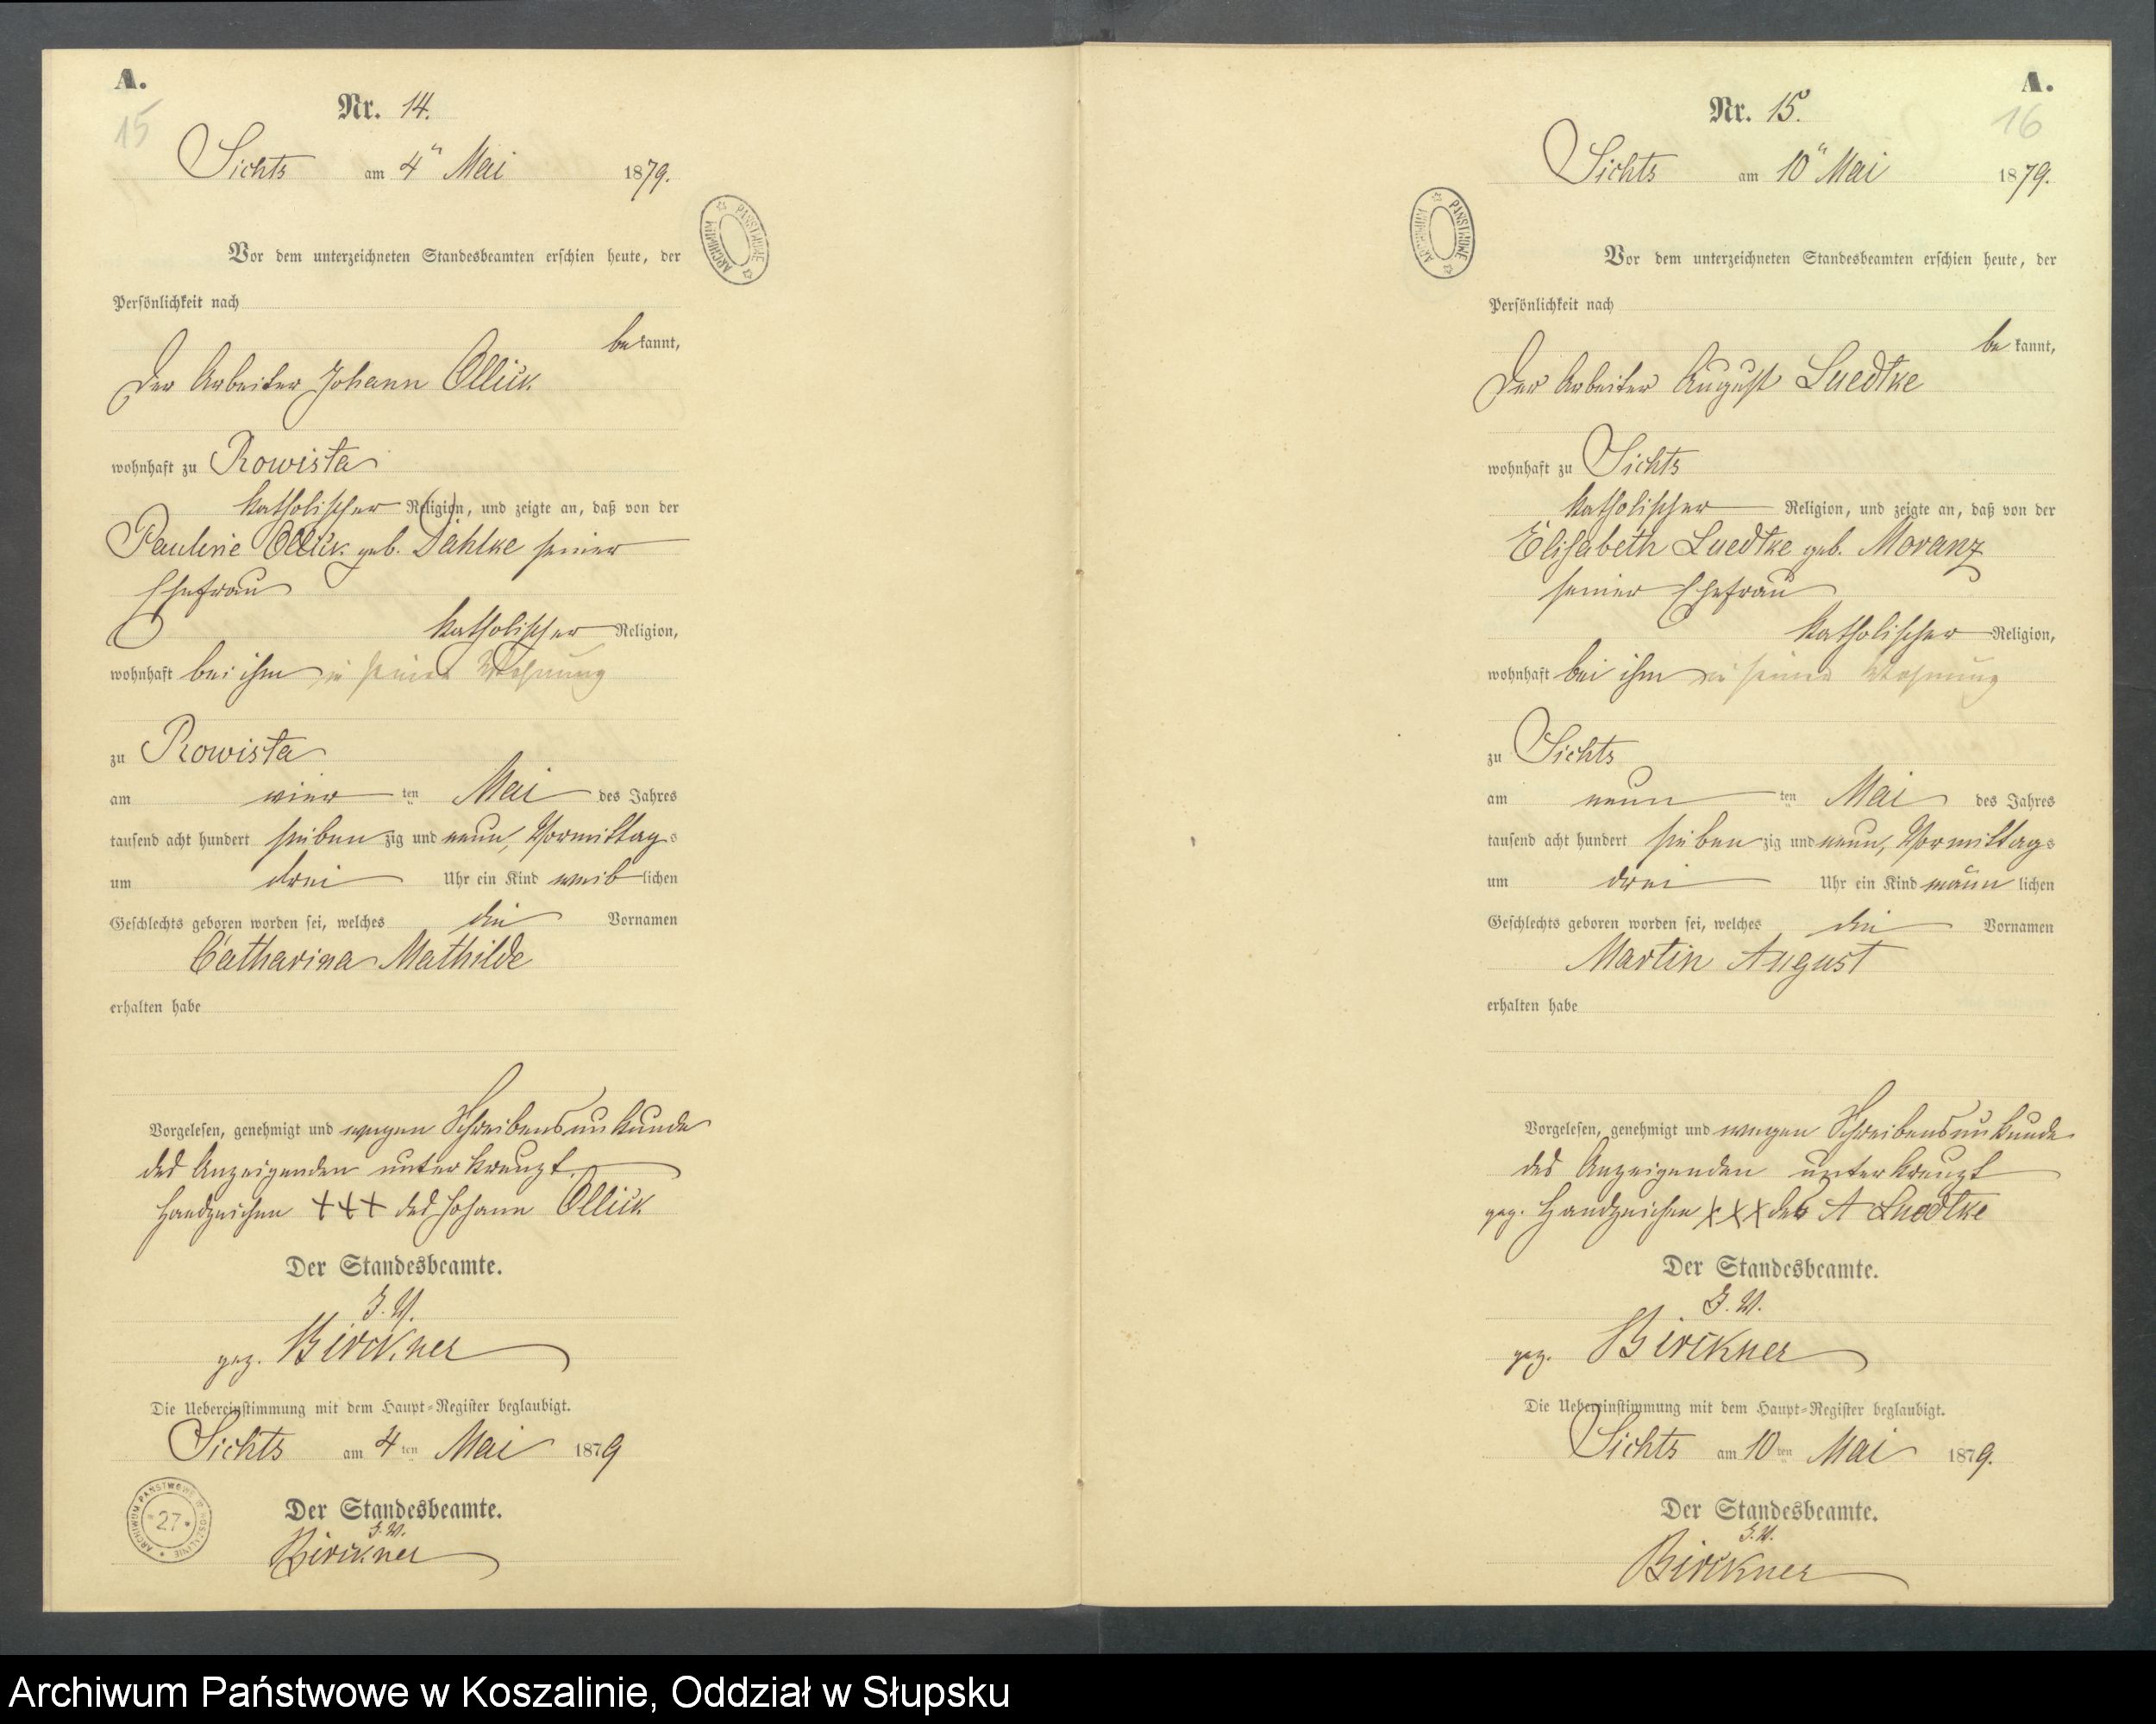 A.
15
Nr. 14.
Sichts am 4ⁿ Mai 1879.
ARCHIWUM PAŃSTWOWE
Vor dem unterzeichneten Standesbeamten erschien heute, der
Persönlichkeit nach
bekannt,
Der Arbeiter Johann Ollick
wohnhaft zu Rowista
katholischer Religion, und zeigte an, daß von der
Pauline Ollick geb. Dahlke seiner
Ehefrau
katholischer Religion,
wohnhaft bei ihm in seiner Wohnung
zu Rowista
am vier ten Mai des Jahres
tausend acht hundert siebenzig und neun, Vormittags
um drei Uhr ein Kind weiblichen
Geschlechts geboren worden sei, welches die Vornamen
Catharina Mathilde
erhalten habe
Vorgelesen, genehmigt und wegen Schreibensunkunde
des Anzeigenden unterkreuzt
Handzeichen +++ des Johann Ollick
Der Standesbeamte.
I. V.
gez. Birckner
Die Uebereinstimmung mit dem Haupt-Register beglaubigt.
Sichts am 4ten Mai 1879
Der Standesbeamte.
I. V.
Birckner
ARCHIWUM PAŃSTWOWE W KOSZALINIE * 27 *
A.
16
Nr. 15.
Sichts am 10ⁿ Mai 1879.
ARCHIWUM PAŃSTWOWE
Vor dem unterzeichneten Standesbeamten erschien heute, der
Persönlichkeit nach
bekannt,
Der Arbeiter August Luedtke
wohnhaft zu Sichts
katholischer Religion, und zeigte an, daß von der
Elisabeth Luedtke geb. Moranz
seiner Ehefrau
katholischer Religion,
wohnhaft bei ihm in seiner Wohnung
zu Sichts
am neun ten Mai des Jahres
tausend acht hundert siebenzig und neun, Vormittags
um drei Uhr ein Kind männlichen
Geschlechts geboren worden sei, welches die Vornamen
Martin August
erhalten habe
Vorgelesen, genehmigt und wegen Schreibensunkunde
des Anzeigenden unterkreuzt
gez. Handzeichen XXX des A Luedtke
Der Standesbeamte.
I. V.
gez. Birckner
Die Uebereinstimmung mit dem Haupt-Register beglaubigt.
Sichts am 10ten Mai 1879.
Der Standesbeamte.
I. V.
Birckner
Archiwum Państwowe w Koszalinie, Oddział w Słupsku